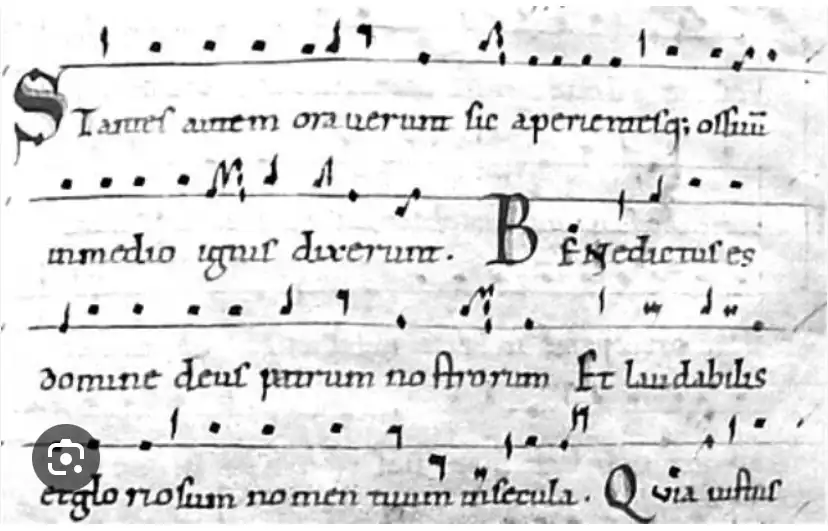 Stantes autem orauerunt sic aperientesq; ossuū
inmedio ignis dixerunt. Benedictus es
domine deus patrum nostrorum Et laudabilis
etgloriosum nomen tuum insecula. Quia iustus